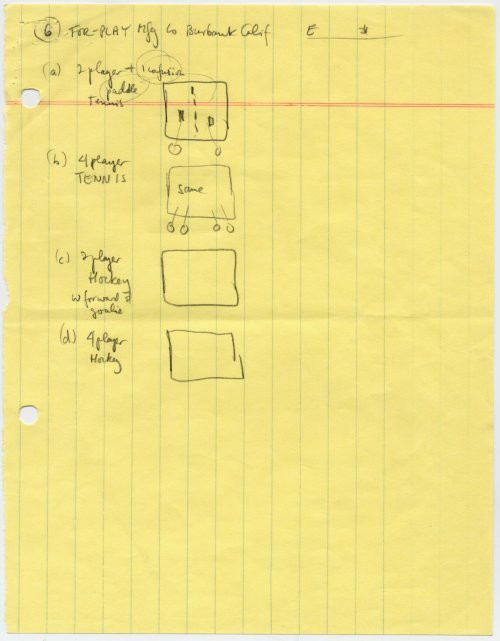 (6) FOR-PLAY Mfg Co Burbank Calif E #
(a) 2 player + 1 confusion
paddle
Tennis
(b) 4 player
TENNIS
same
(c) 2 player
Hockey
w forward &
goalie
(d) 4 player
Hockey